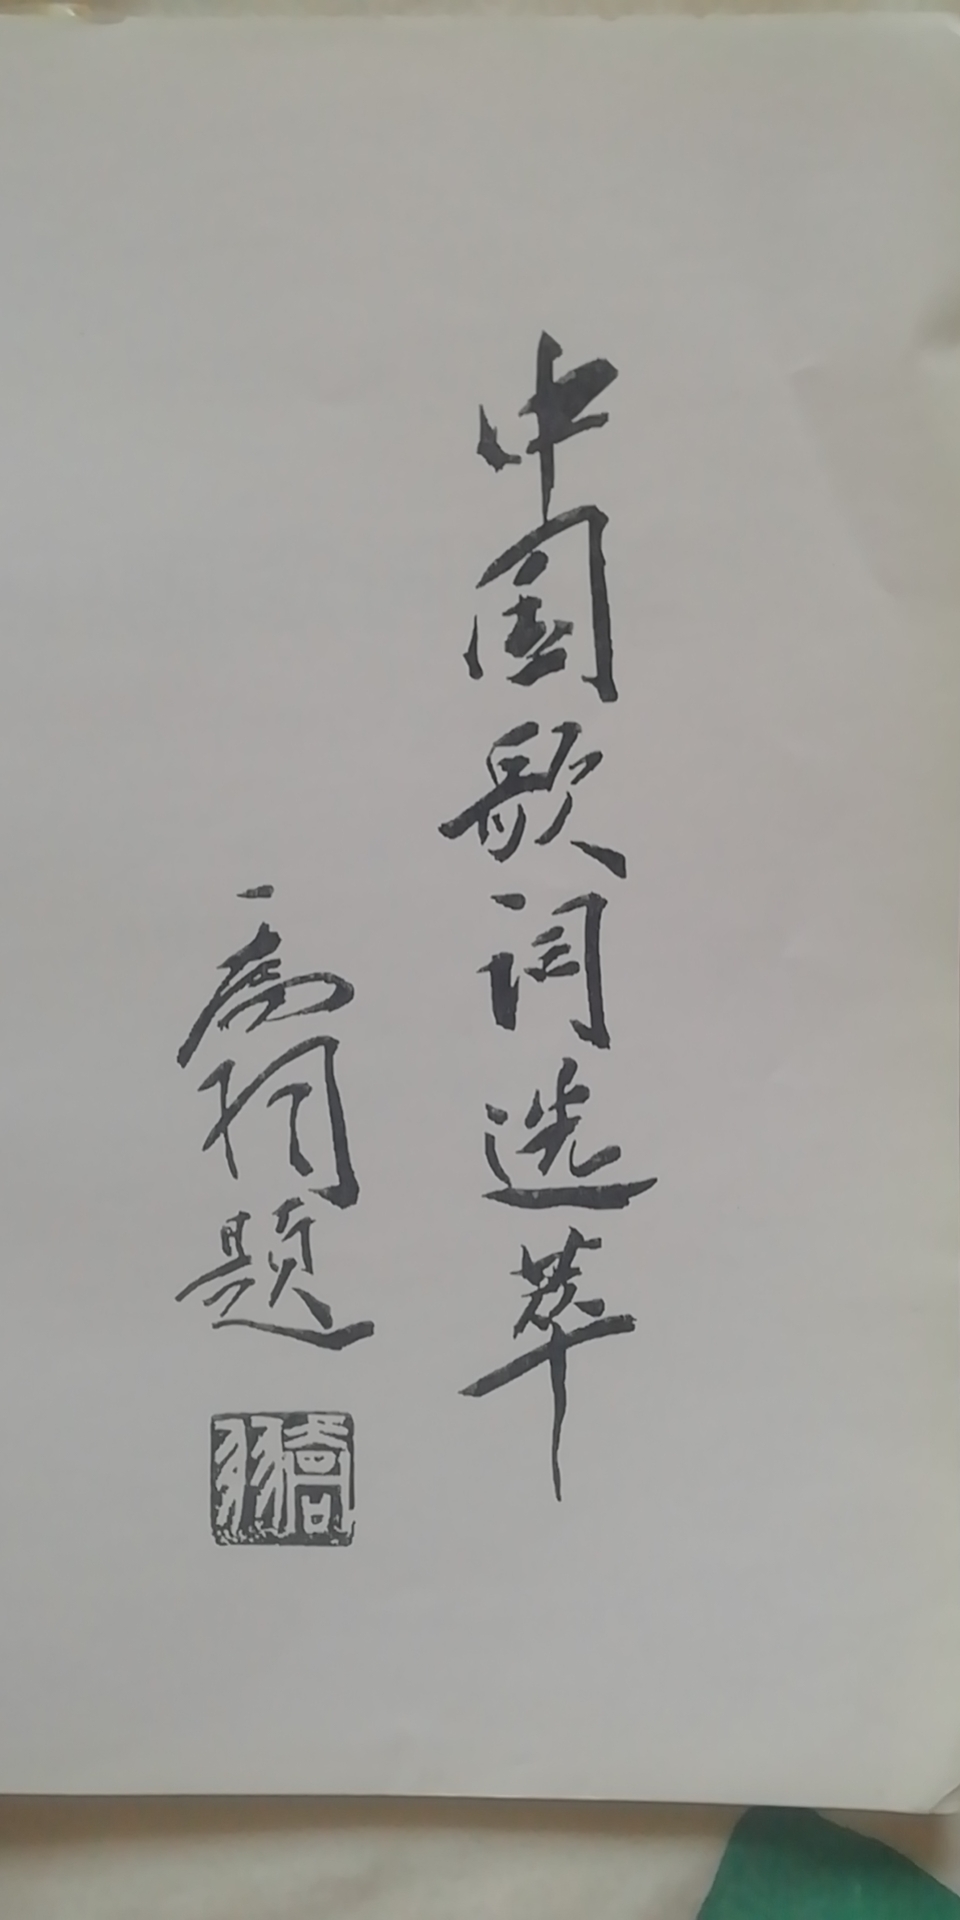 中国歌词选萃
乔羽题
乔羽